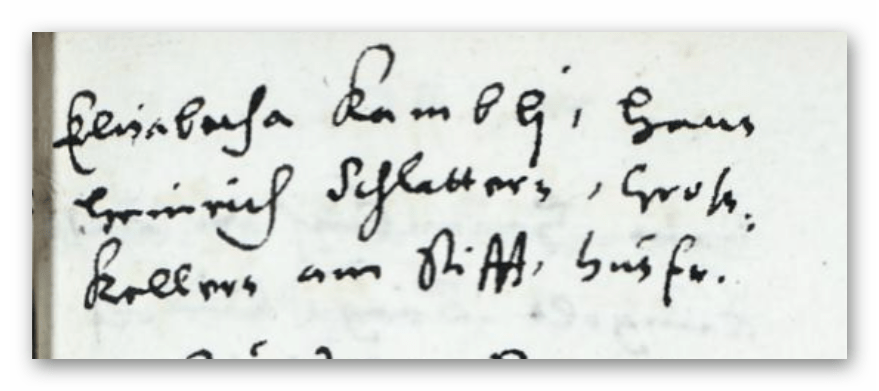 Elisabetha Kamblj, Hans
Heinrich Schlattern, Gross-
Kellers am Stifft, husfr.